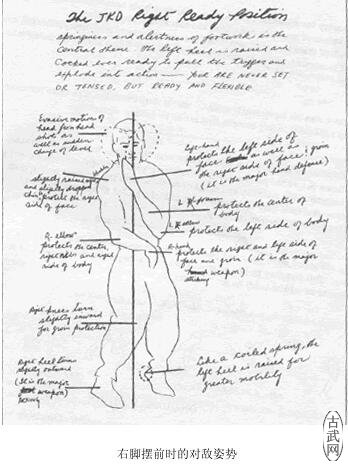 The JKD Right Ready Position
springiness and alertness of footwork is the
central theme. The left heel is raised and
cocked ever ready to pull the trigger and
explode into action — YOU ARE NEVER SET
OR TENSED, BUT READY AND FLEXIBLE.
Evasive motion of
head from hand
shots as
well as sudden
change of level
slightly raised
and slightly dropped
chin protect the right
side of face
R. elbow
protects the center,
right ribs and right
side of body
Right knee turn
slightly inward
for groin protection
Right heel turn
slightly outward
(It is the major
weapon)
Left hand
protects the left side of
face as well as
the right side of face & groin
(it is the major hand defense)
L forearm
protects the center of
body
L elbow
protects the left side of body
R. hand
protects the right and left side of
face and groin (it is the major
weapon)
striking
Like a coiled spring, the
left heel is raised for
greater mobility
右脚摆前时的对敌姿势
古武网